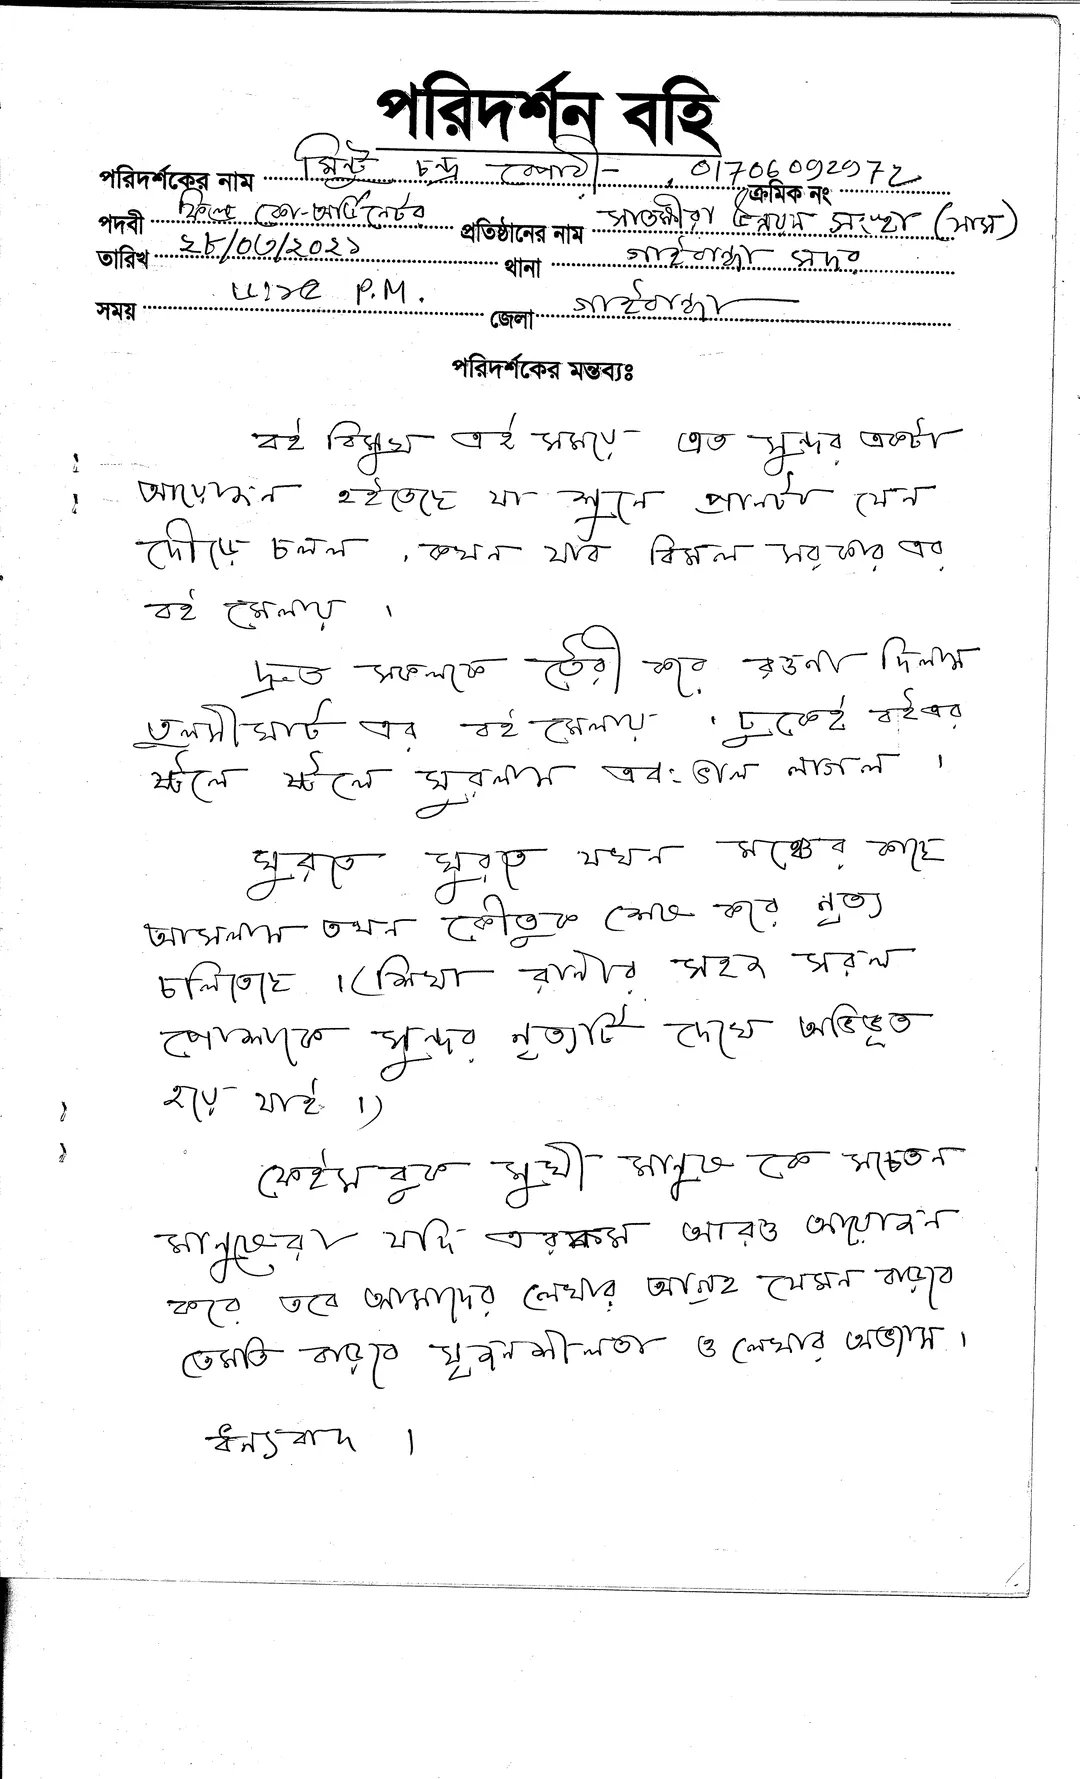 পরিদর্শন বহি
পরিদর্শকের নাম মিন্টু চন্দ্র 01706092972
ক্রমিক নং
পদবী ফিল্ড কো-অর্ডিনেটর প্রতিষ্ঠানের নাম সাতক্ষীরা উন্নয়ন সংস্থা (সাস)
তারিখ ২৮/০৩/২০২১ থানা গাইবান্ধা সদর
সময় P.M. জেলা গাইবান্ধা
পরিদর্শকের মন্তব্যঃ
বই বিমুখ এই সময়ে এত সুন্দর একটা
আয়োজন হইতেছে যা শুনে প্রানটা যেন
দৌড়ে চলল , কখন যাব বিমল সরকার এর
বই মেলায় ।
দ্রুত সকলকে তৈরী করে রওনা দিলাম
তুলসীঘাট এর বই মেলায় । ঢুকেই বইএর
ষ্টলে ষ্টলে ঘুরলাম এবং ভাল লাগল ।
ঘুরতে ঘুরতে যখন মঞ্চের কাছে
আসলাম তখন কৌতুক শেষ করে নৃত্য
চলিতেছে । (শিখা রানীর সহজ সরল
পোশাকে সুন্দর নৃত্যটি দেখে অভিভূত
হয়ে যাই ।)
ফেইসবুক মুখী মানুষ কে সচেতন
মানুষেরা যদি এরকম আরও আয়োজন
করে তবে আমাদের লেখার আগ্রহ যেমন বাড়বে
তেমতি বাড়বে সৃজনশীলতা ও লেখার অভ্যাস ।
ধন্যবাদ ।